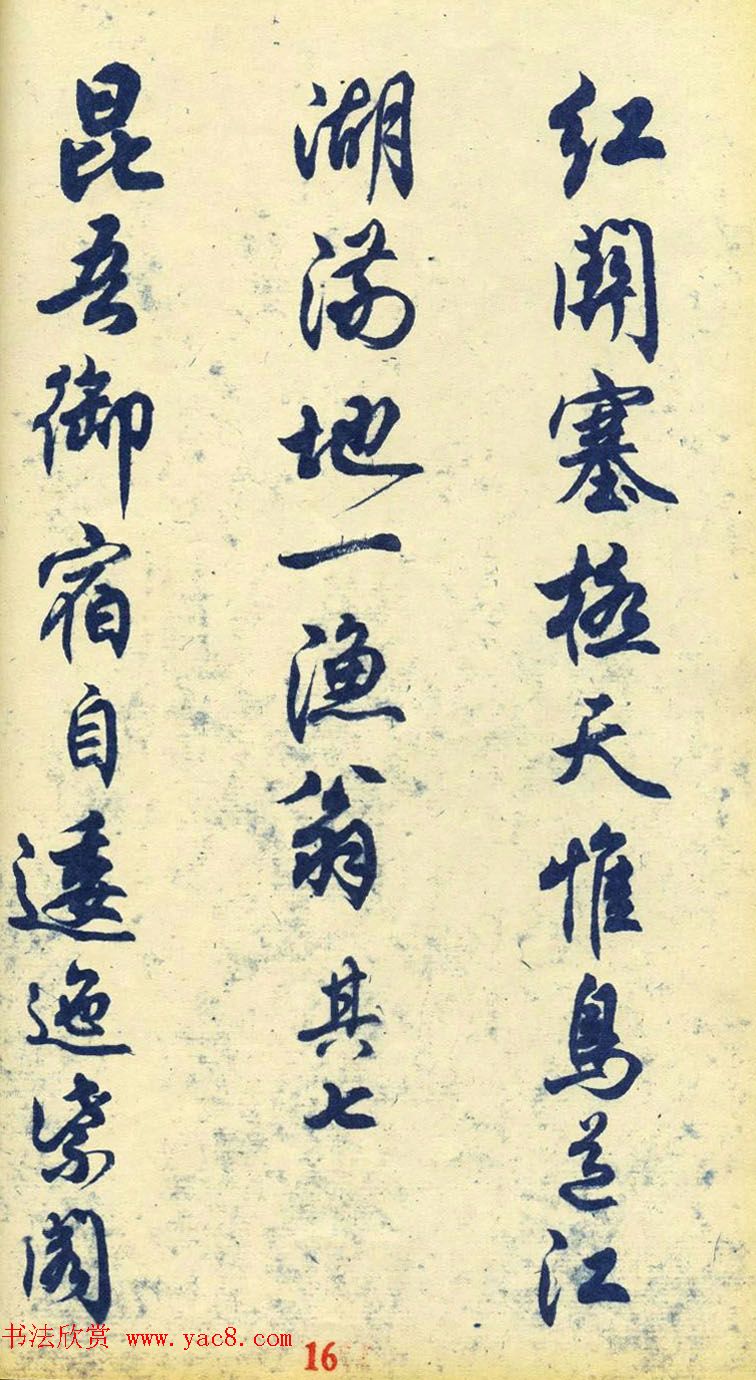 红關塞極天惟鳥道江
湖滿地一漁翁 其七
昆吾御宿自逶迤紫閣
书法欣赏 www.yac8.com
16